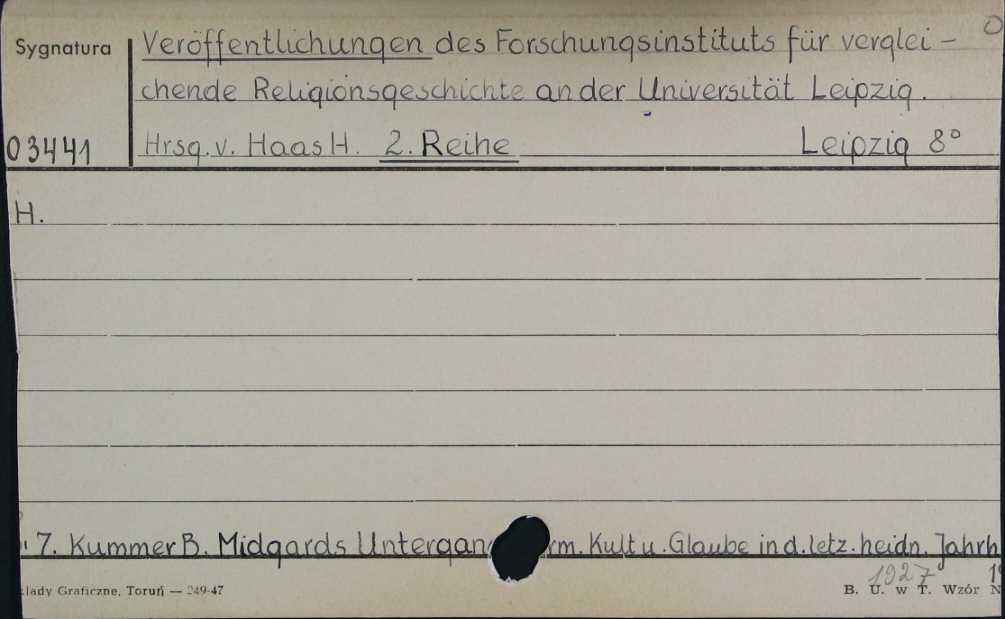 Sygnatura
Veröffentlichungen des Forschungsinstituts für verglei-
chende Religionsgeschichte an der Universität Leipzig.
03441 Hrsg. v. Haas H. 2. Reihe Leipzig 8°
H.
7. Kummer B. Midgards Untergan rm. Kult u. Glaube in d. letz. heidn. Jahrh
1927
łady Graficzne, Toruń — 249-47 B. U. w T. Wzór N